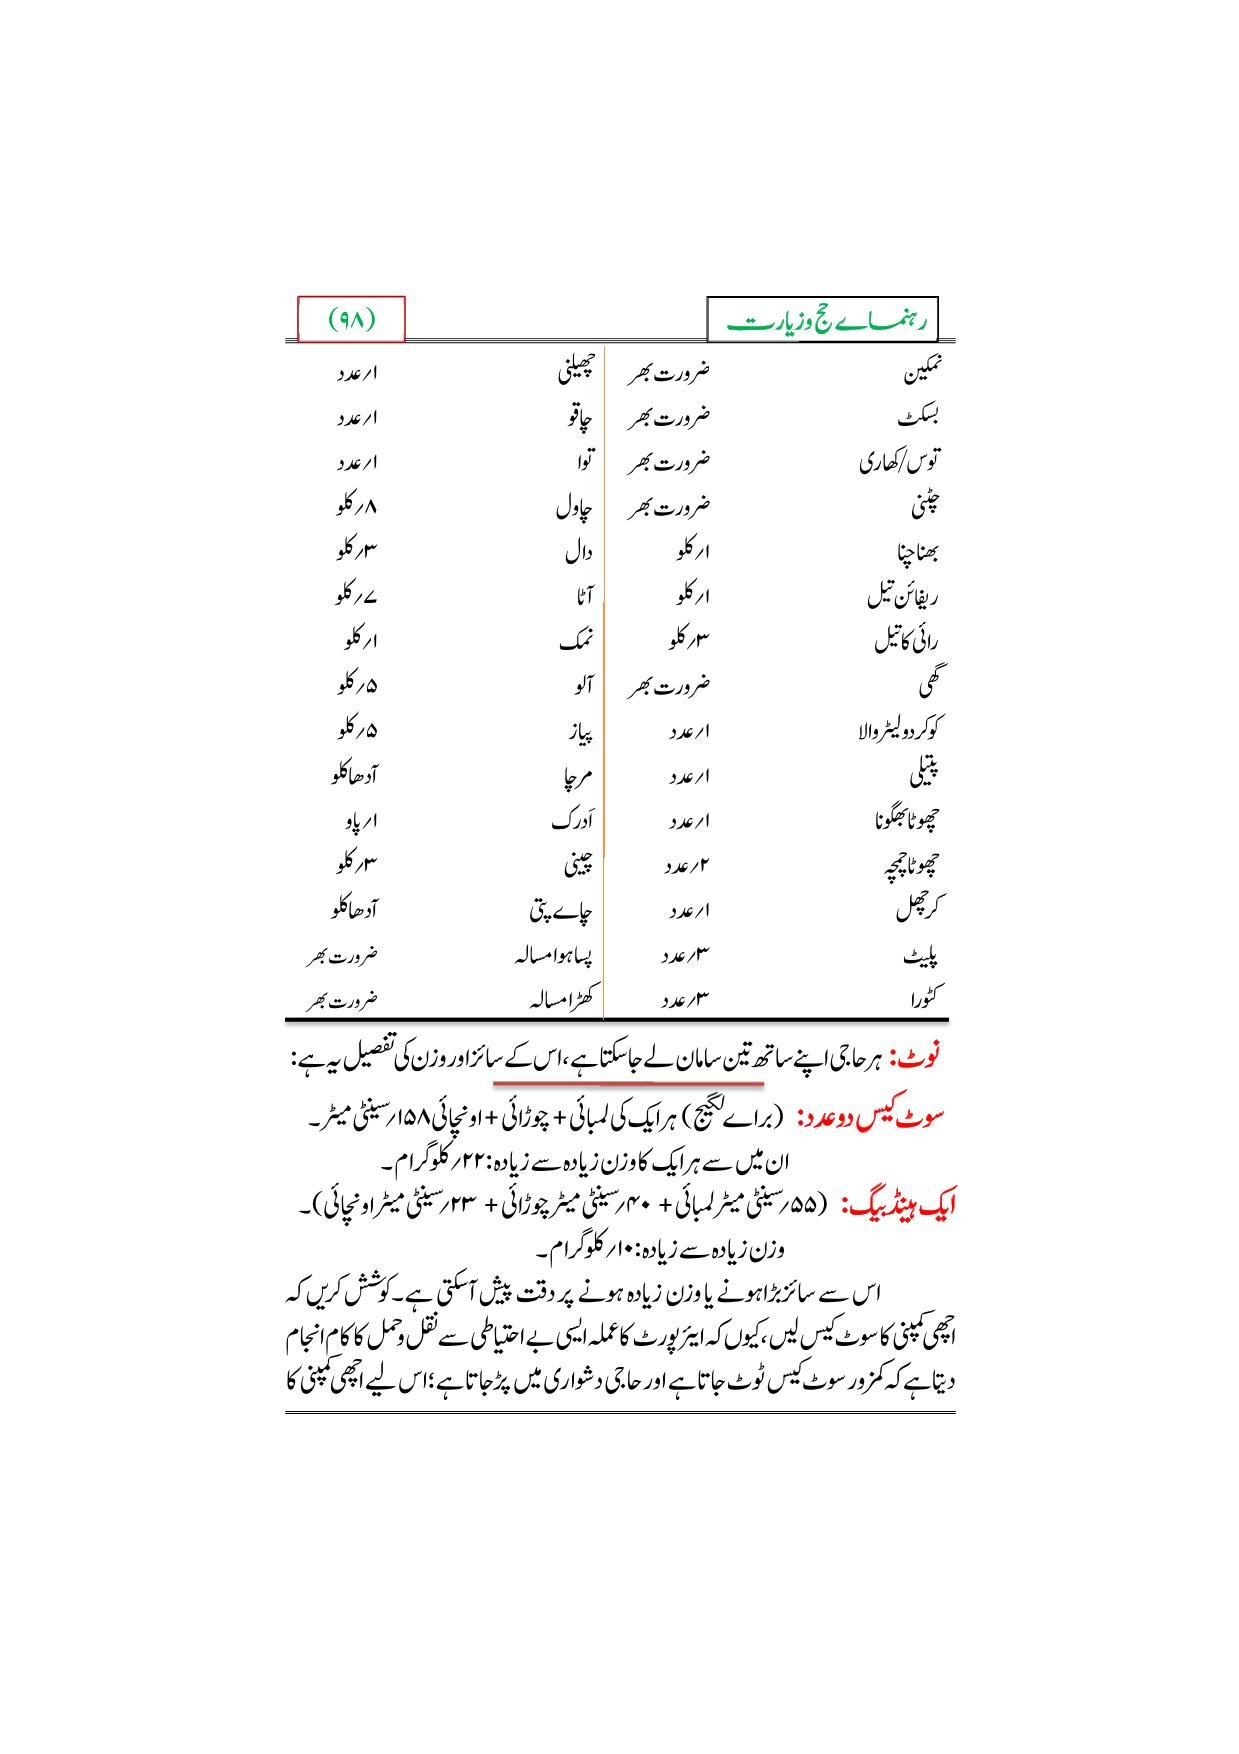 رہنماے حج و زیارت (۹۸)
نمکین ضرورت بھر چھیلنی ۱؍ عدد
بسکٹ ضرورت بھر چاقو ۱؍ عدد
توس/کھاری ضرورت بھر توا ۱؍ عدد
چٹنی ضرورت بھر چاول ۸؍ کلو
بھنا چنا ۱؍ کلو دال ۳؍ کلو
ریفائن تیل ۱؍ کلو آٹا ۷؍ کلو
رائی کا تیل ۳؍ کلو نمک ۱؍ کلو
گھی ضرورت بھر آلو ۵؍ کلو
کوکر دو لیٹر والا ۱؍ عدد پیاز ۵؍ کلو
پتیلی ۱؍ عدد مرچا آدھا کلو
چھوٹا بھگونا ۱؍ عدد اَدرک ۱؍ پاو
چھوٹا چمچہ ۲؍ عدد چینی ۳؍ کلو
کرچھل ۱؍ عدد چاے پتی آدھا کلو
پلیٹ ۳؍ عدد پسا ہوا مسالہ ضرورت بھر
کٹورا ۳؍ عدد کھڑا مسالہ ضرورت بھر
نوٹ: ہر حاجی اپنے ساتھ تین سامان لے جا سکتا ہے، اس کے سائز اور وزن کی تفصیل یہ ہے:
سوٹ کیس دو عدد: (براے لگیج) ہر ایک کی لمبائی + چوڑائی + اونچائی ۱۵۸؍ سینٹی میٹر۔
ان میں سے ہر ایک کا وزن زیادہ سے زیادہ: ۲۲؍ کلو گرام۔
ایک ہینڈ بیگ: (۵۵؍ سینٹی میٹر لمبائی + ۴۰؍ سینٹی میٹر چوڑائی + ۲۳؍ سینٹی میٹر اونچائی)۔
وزن زیادہ سے زیادہ: ۱۰؍ کلو گرام۔
اس سے سائز بڑا ہونے یا وزن زیادہ ہونے پر دقت پیش آسکتی ہے۔ کوشش کریں کہ
اچھی کمپنی کا سوٹ کیس لیں، کیوں کہ ایئر پورٹ کا عملہ ایسی بے احتیاطی سے نقل و حمل کا کام انجام
دیتا ہے کہ کمزور سوٹ کیس ٹوٹ جاتا ہے اور حاجی دشواری میں پڑ جاتا ہے؛ اس لیے اچھی کمپنی کا